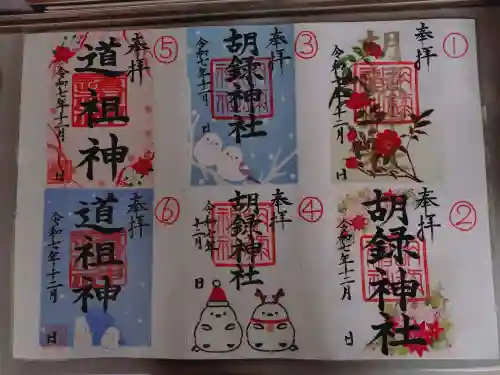 ①
奉拝
胡
令和七年十二月
日
②
奉拝
胡録神社
令和七年十二月
日
③
奉拝
胡録神社
令和七年十二月
日
④
奉拝
胡録神社
令和七年
十二月
日
⑤
奉拝
道祖神
令和七年十二月
日
⑥
奉拝
道祖神
令和七年十二月
日